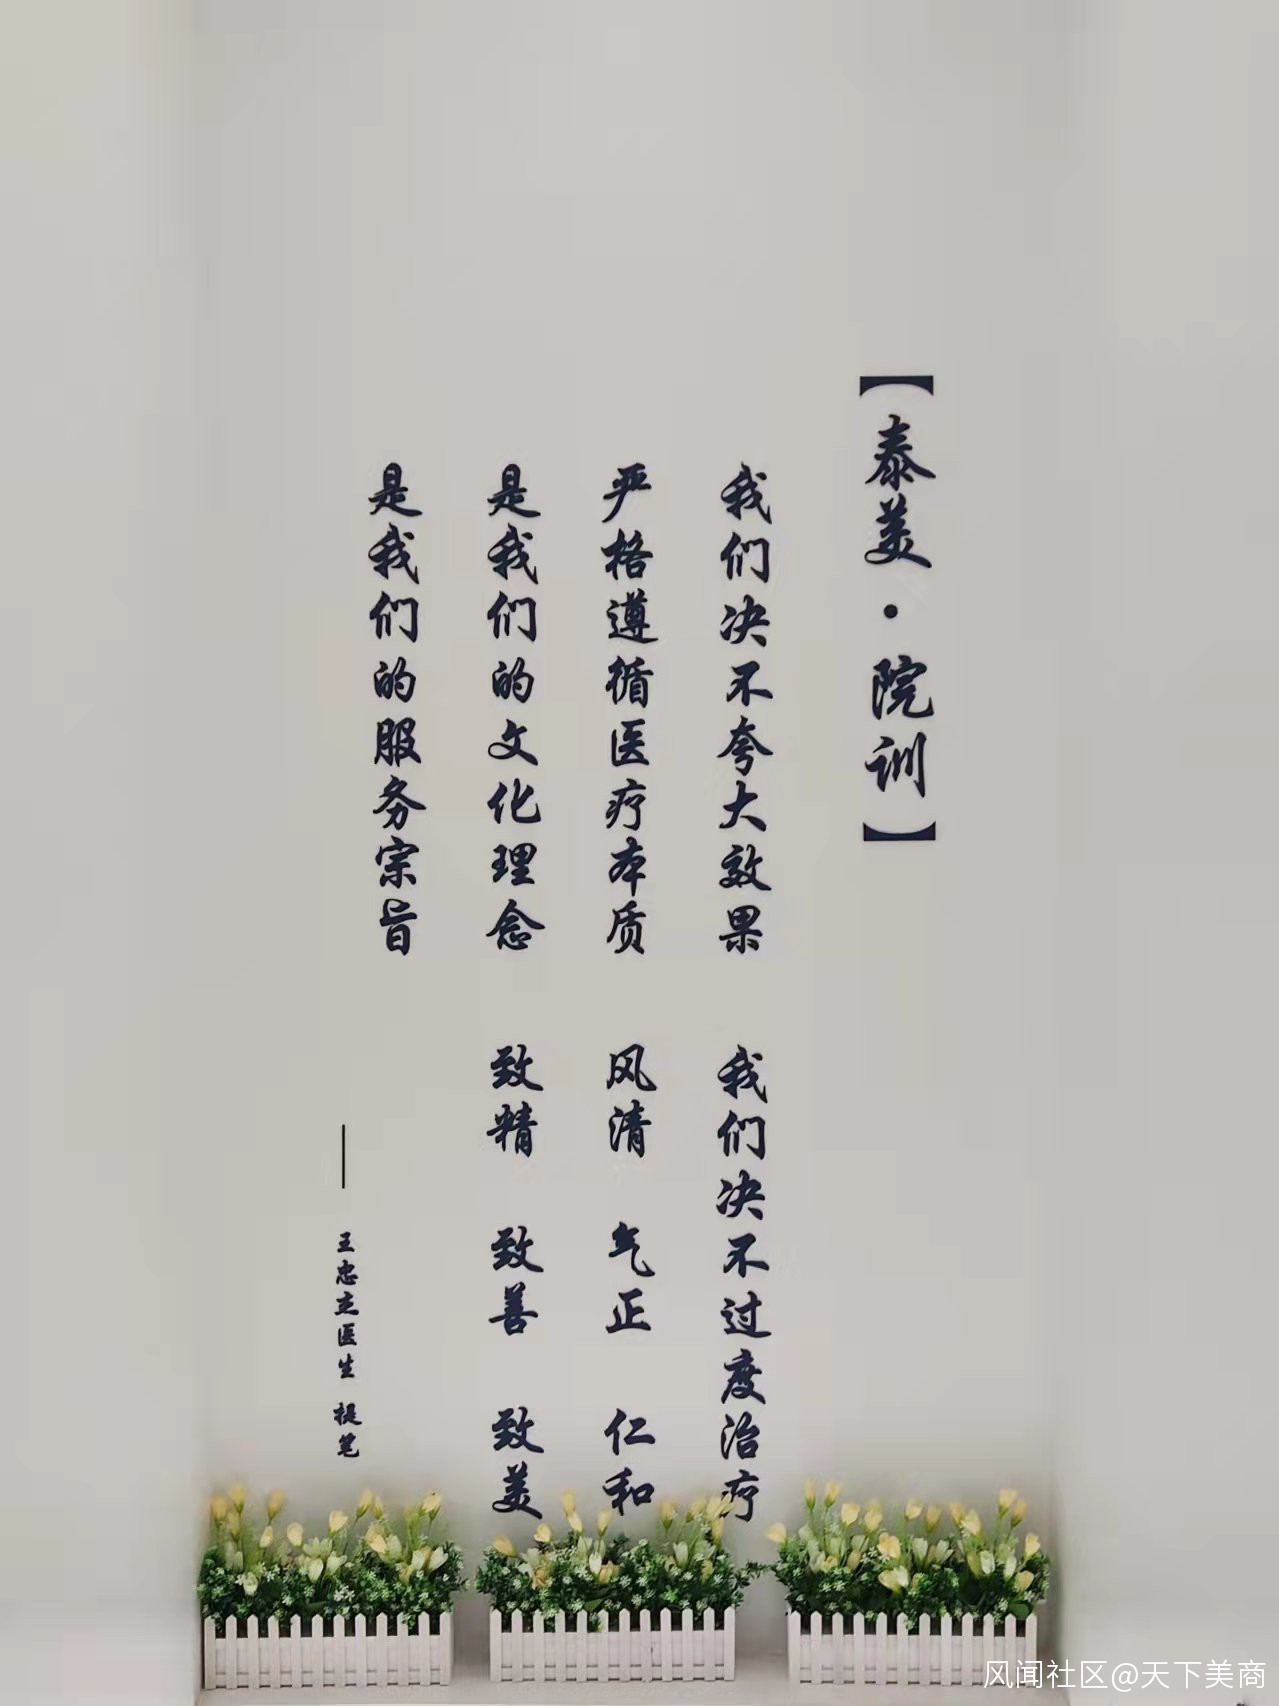 【泰美·院训】
我们决不夸大效果 我们决不过度治疗
严格遵循医疗本质 风清 气正 仁和
是我们的文化理念 致精 致善 致美
是我们的服务宗旨
——王忠立医生 提笔
风闻社区@天下美商